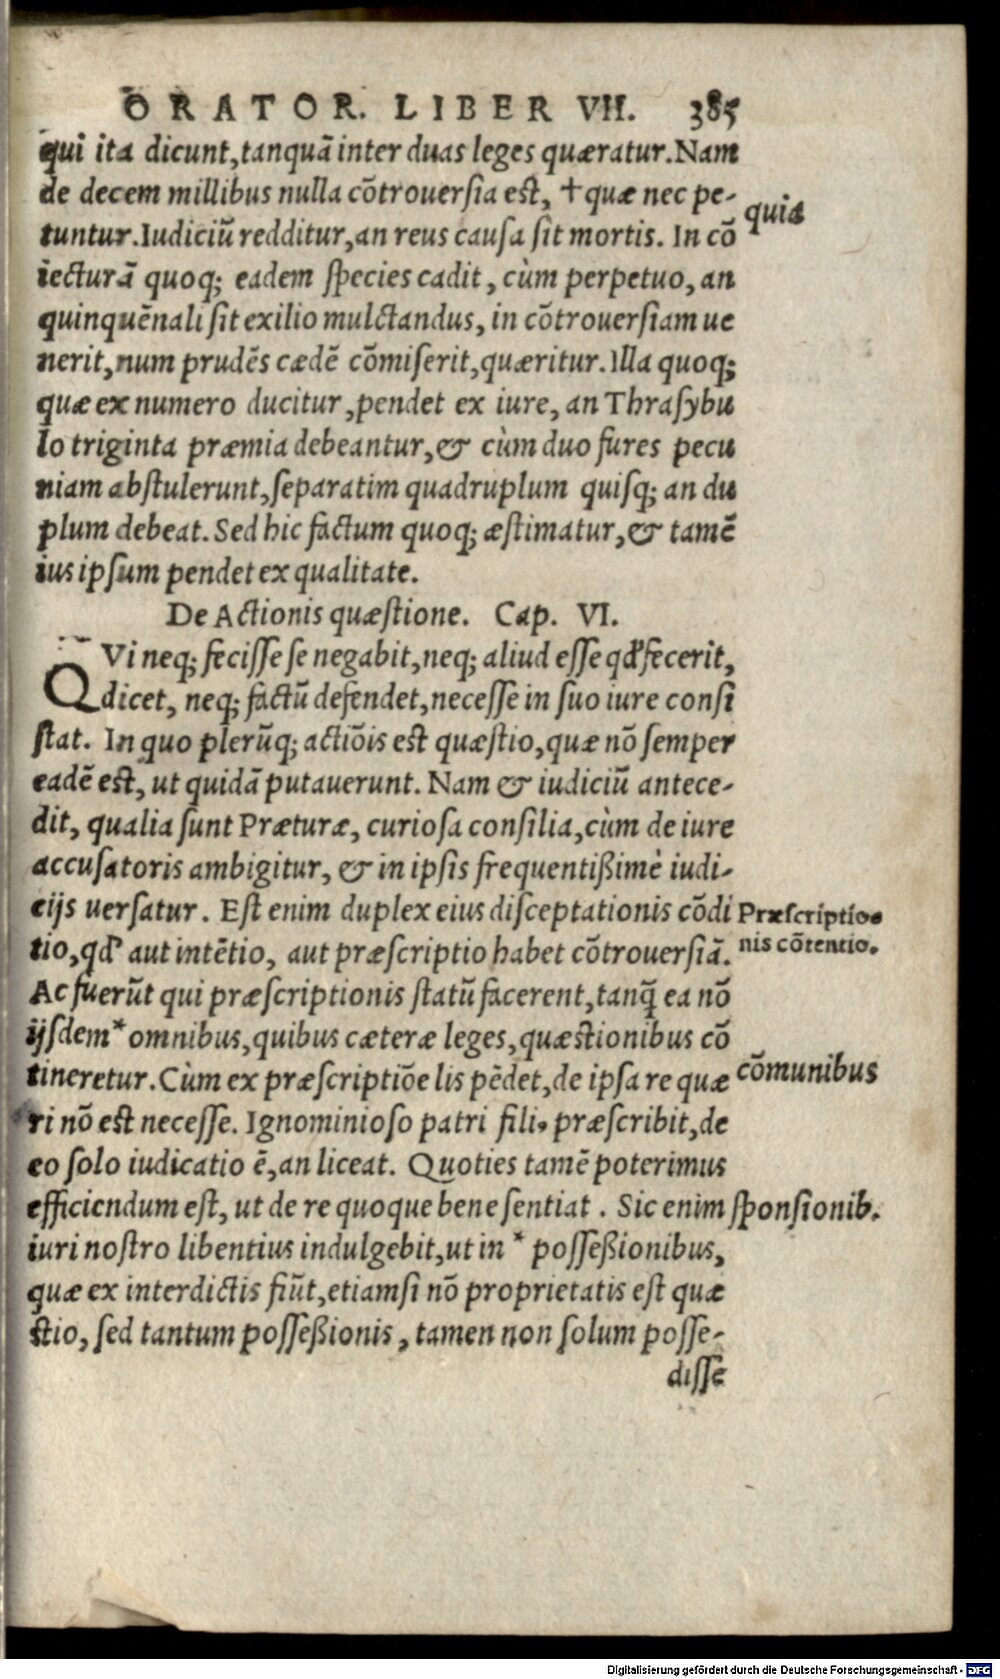 ORATOR. LIBER VII. 385
qui ita dicunt,tanquã inter duas leges quæratur.Nam
de decem millibus nulla cõtrouersia est, †quæ nec pe-
quia
tuntur.Iudiciũ redditur,an reus causa sit mortis. In cõ
iecturã quoq; eadem species cadit, cùm perpetuo, an
quinquẽnali sit exilio mulctandus, in cõtrouersiam ue
nerit,num prudẽs cædẽ cõmiserit,quæritur.Illa quoq;
quæ ex numero ducitur,pendet ex iure, an Thrasybu
lo triginta præmia debeantur,& cùm duo fures pecu
niam abstulerunt,separatim quadruplum quisq; an du
plum debeat.Sed hic factum quoq; æstimatur,& tamẽ
ius ipsum pendet ex qualitate.
De Actionis quæstione. Cap. VI.
QVi neq; fecisse se negabit,neq; aliud esse qd' fecerit,
dicet, neq; factũ defendet,necesse in suo iure consi
stat. In quo plerũq; actiõis est quæstio,quæ nõ semper
eadẽ est, ut quidã putauerunt. Nam & iudiciũ antece-
dit, qualia sunt Præturæ, curiosa consilia,cùm de iure
accusatoris ambigitur, & in ipsis frequentißimè iudi-
cijs uersatur. Est enim duplex eius disceptationis cõdi
Præscriptio-
nis cõtentio.
tio,qd' aut intẽtio, aut præscriptio habet cõtrouersiã.
Ac fuerũt qui præscriptionis statũ facerent,tanq̃ ea nõ
ijsdem* omnibus,quibus cæteræ leges,quæstionibus cõ
cõmunibus
tineretur.Cùm ex præscriptiõe lis pẽdet,de ipsa re quæ
ri nõ est necesse. Ignominioso patri fili, præscribit,de
eo solo iudicatio ẽ,an liceat. Quoties tamẽ poterimus
efficiendum est, ut de re quoque bene sentiat. Sic enim
sponsionib.
iuri nostro libentius indulgebit,ut in * possessionibus,
quæ ex interdictis fiũt,etiamsi nõ proprietatis est quæ
stio, sed tantum poßeßionis, tamen non solum posse-
disse
Digitalisierung gefördert durch die Deutsche Forschungsgemeinschaft - DFG